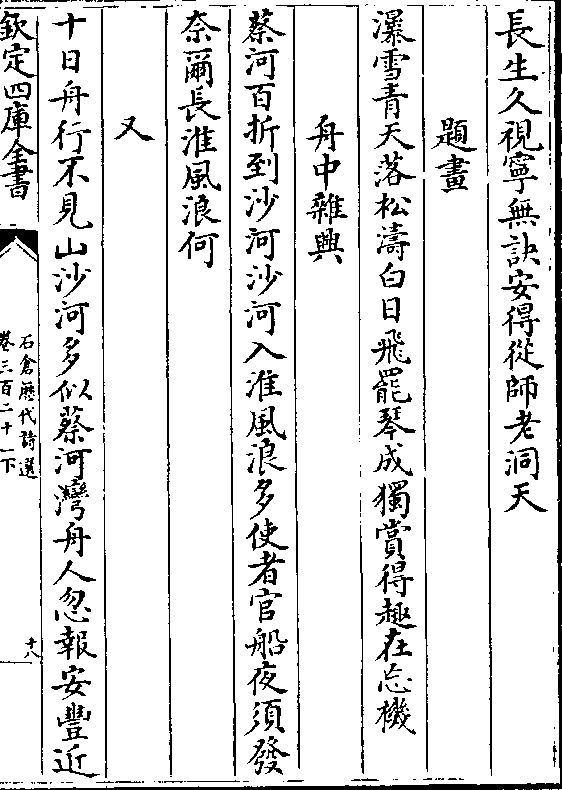 長生久視寧無訣安得從師老洞天
題畫
瀑雪青天落松濤白日飛罷琴成獨賞得趣在忘機
舟中雜興
蔡河百折到沙河沙河入淮風浪多使者官船夜須發
奈爾長淮風浪何
又
十日舟行不見山沙河多似蔡河灣舟人忽報安豐近
欽定四庫全書
石倉歷代詩選
卷三百二十一下
十八